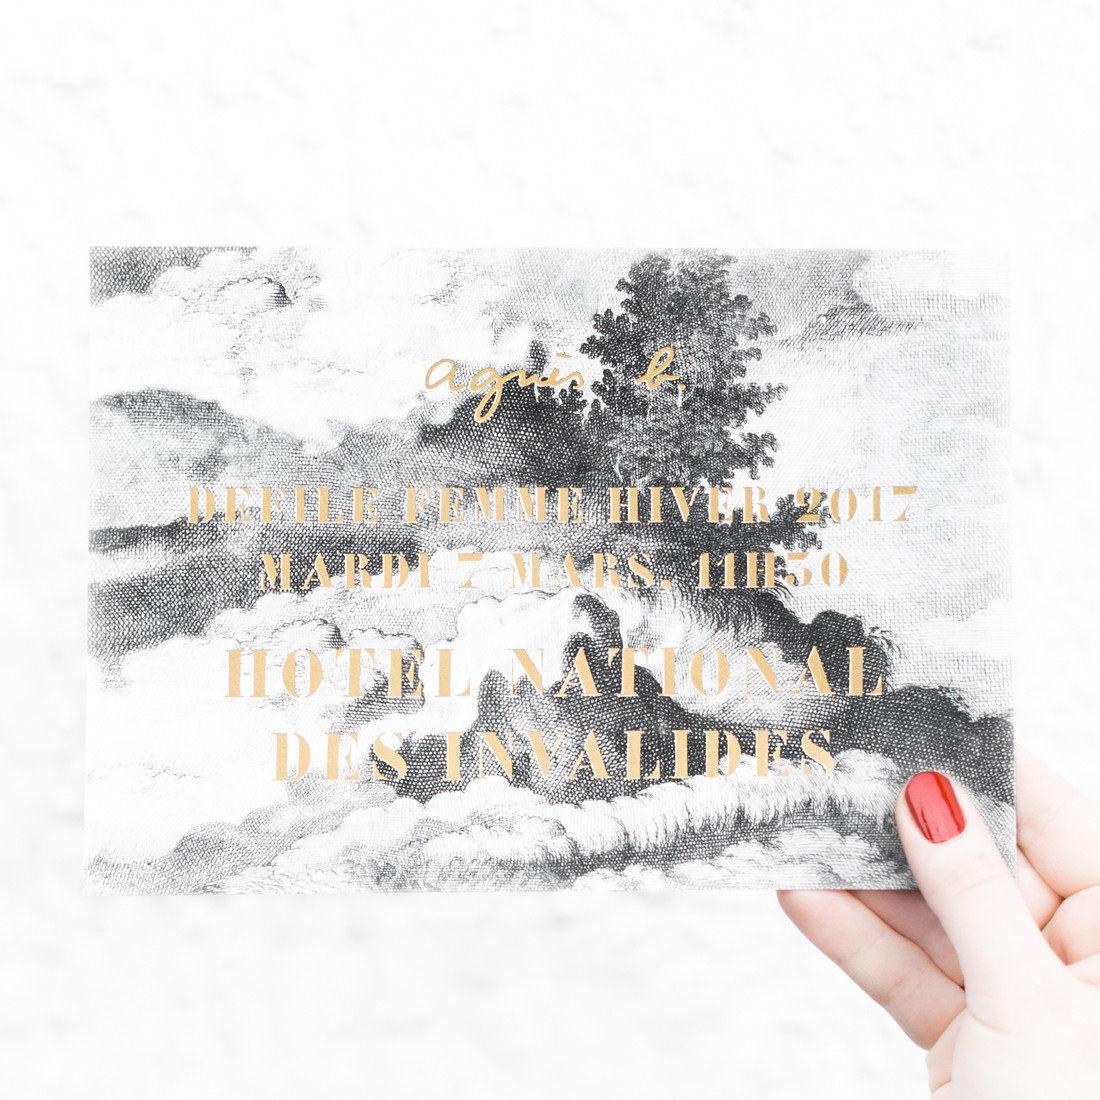 agnès b.
DEFILE FEMME HIVER 2017
MARDI 7 MARS, 11H30
HOTEL NATIONAL
DES INVALIDES